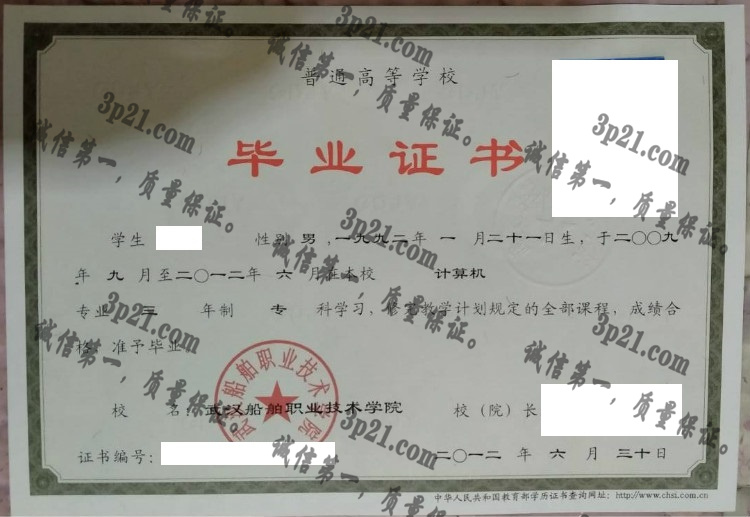 普通高等学校
毕业证书
学生 性别 男 ,一九九二年 一 月二十一日生，于二〇〇九
年 九 月至二〇一二年 六 月在本校 计算机
专业 三 年制 专 科学习，修完教学计划规定的全部课程，成绩合
格，准予毕业。
校 名：武汉船舶职业技术学院 校（院）长
证书编号： 二〇一二 年 六 月 三十日
中华人民共和国教育部学历证书查询网址：http://www.chsi.com.cn
武汉船舶职业技术学院
3p21.com
诚信第一，质量保证。
3p21.com
诚信第一，质量保证。
3p21.com
诚信第一，质量保证。
3p21.com
诚信第一，质量保证。
3p21.com
诚信第一，质量保证。
3p21.com
诚信第一，质量保证。
3p21.com
诚信第一，质量保证。
3p21.com
诚信第一，质量保证。